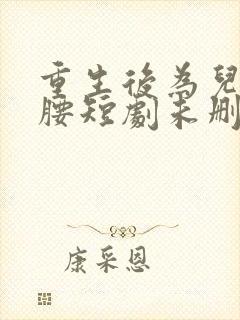 重生後為兒
腰短劇未刪
康采恩